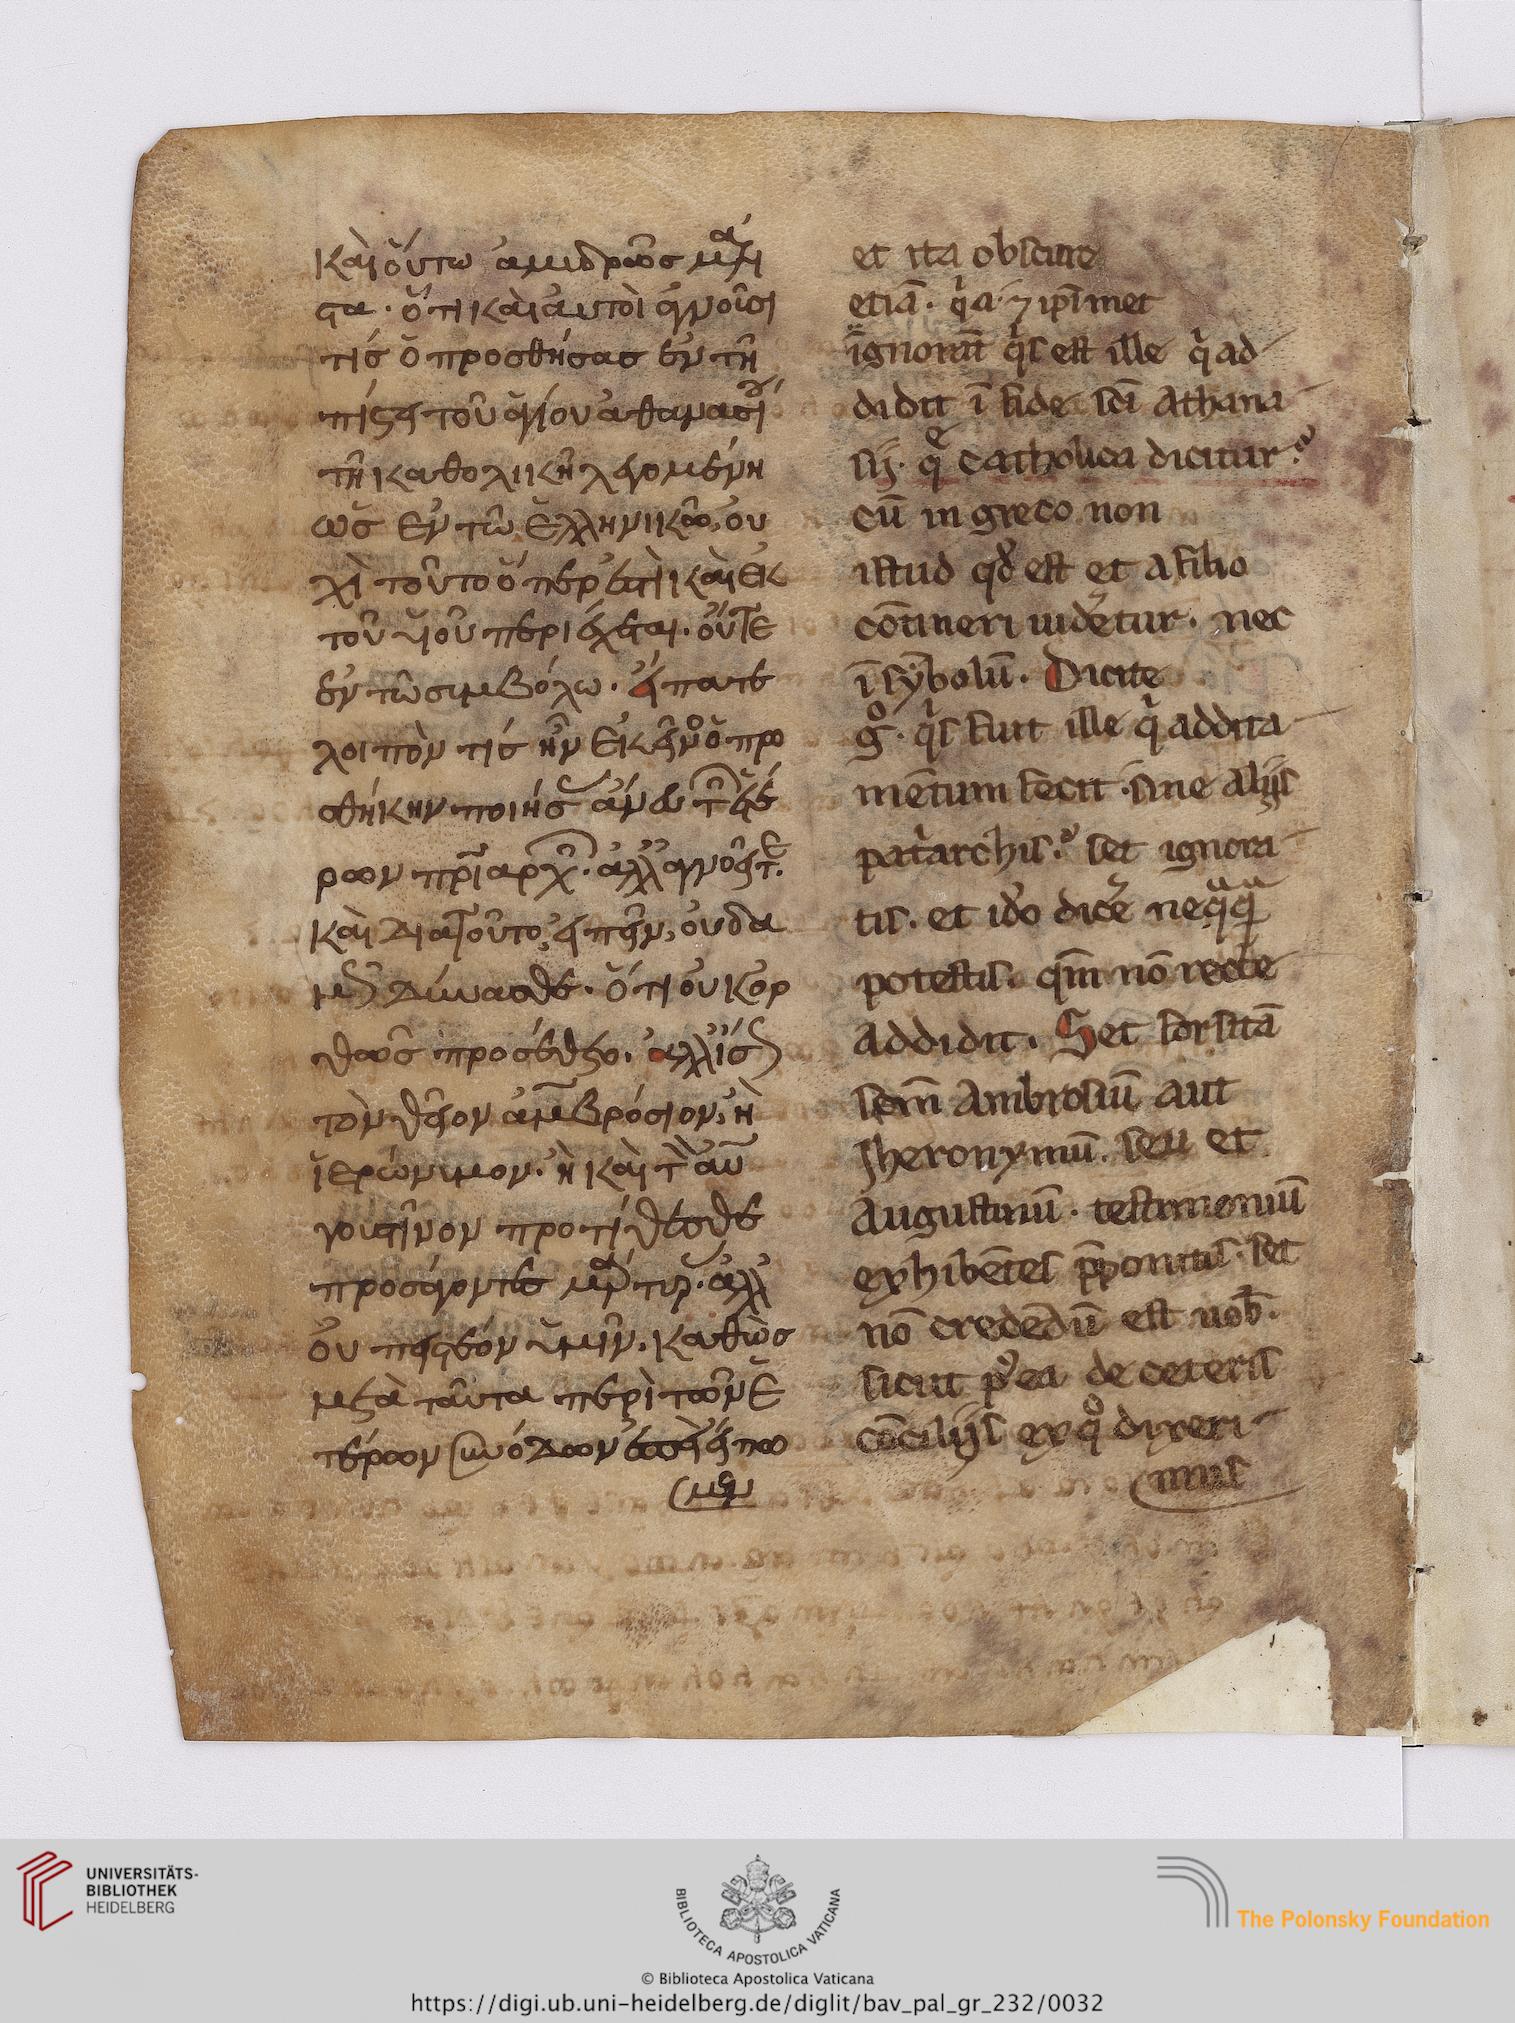 καὶ οὕτω ἀμυδρῶς μάλι
στα· ὅτι καὶ αὐτοὶ ἀγνοοῦσι
τίς ὁ προσθήσας ἐν τῇ
πίστει τοῦ ἁγίου ἀθανασίου
τῇ καθολικῇ λεγομένη
ὡς ἐν τῶ ἑλληνικῶ, οὐ
χὶ τοῦτο ὅπερ ἐστὶ καὶ ἐκ
τοῦ υἱοῦ περιέχεται· οὔτε
ἐν τῶ σιμβόλω· εἴπατε
λοιπὸν τίς ἦν ἐκεῖνος ὁ προ
σθήκην ποιήσας ἄνευ τῶν ἑτέ
ρων πριαρχῶν· ἀλλ ἀγνοεῖτε·
καὶ διατοῦτο, εἰπεῖν, οὐδα
μῶς δύνασθε· ὅτι οὐκ ὀρ
θῶς προσέθετο. ἀλλ ἴσως
τὸν θεῖον ἀμβρόσιον, ἢ
ἱερώνιμον· ἢ καὶ τὸν αὐ
γουστῖνον προτίθεσθε
προσάγοντες μάρτυρας· ἀλλ
οὐ πειστέον ὑμῖν. καθὼς
μετὰ ταῦτα περὶ τῶν ἑ
τέρων συνόδων εἴπω
μεν
et ita obscure
etiā· q̍a· ⁊ ip̄imet
ignorāt q̍s est ille q̍ ad
didit ī fide sc̄i Athana
sij· q̄ catholica dicitur?
cū in greco non
istud qd̓ est et a filio
cōtineri uidētur· nec
ī sȳbolū· Dicite
gͦ· q̍s fuit ille q̍ addita
mētum fecit sine alijs
pat̍archis? set ignora
tis· et id̓o dicē neq̄q̄
potestis· qm̄ nō recte
addidit. Set forsitā
sc̄m Ambrosiū aut
Iheronymū. seu et
Augustinū· testimoniū
exhibētes p̄ponitis· set
nō credēdū est uob̄·
sicut p̓ ea de ceteris
cōcilijs ex qͦ dixeri
mus
UNIVERSITÄTS-
BIBLIOTHEK
HEIDELBERG
BIBLIOTECA APOSTOLICA VATICANA
The Polonsky Foundation
© Biblioteca Apostolica Vaticana
https://digi.ub.uni-heidelberg.de/diglit/bav_pal_gr_232/0032